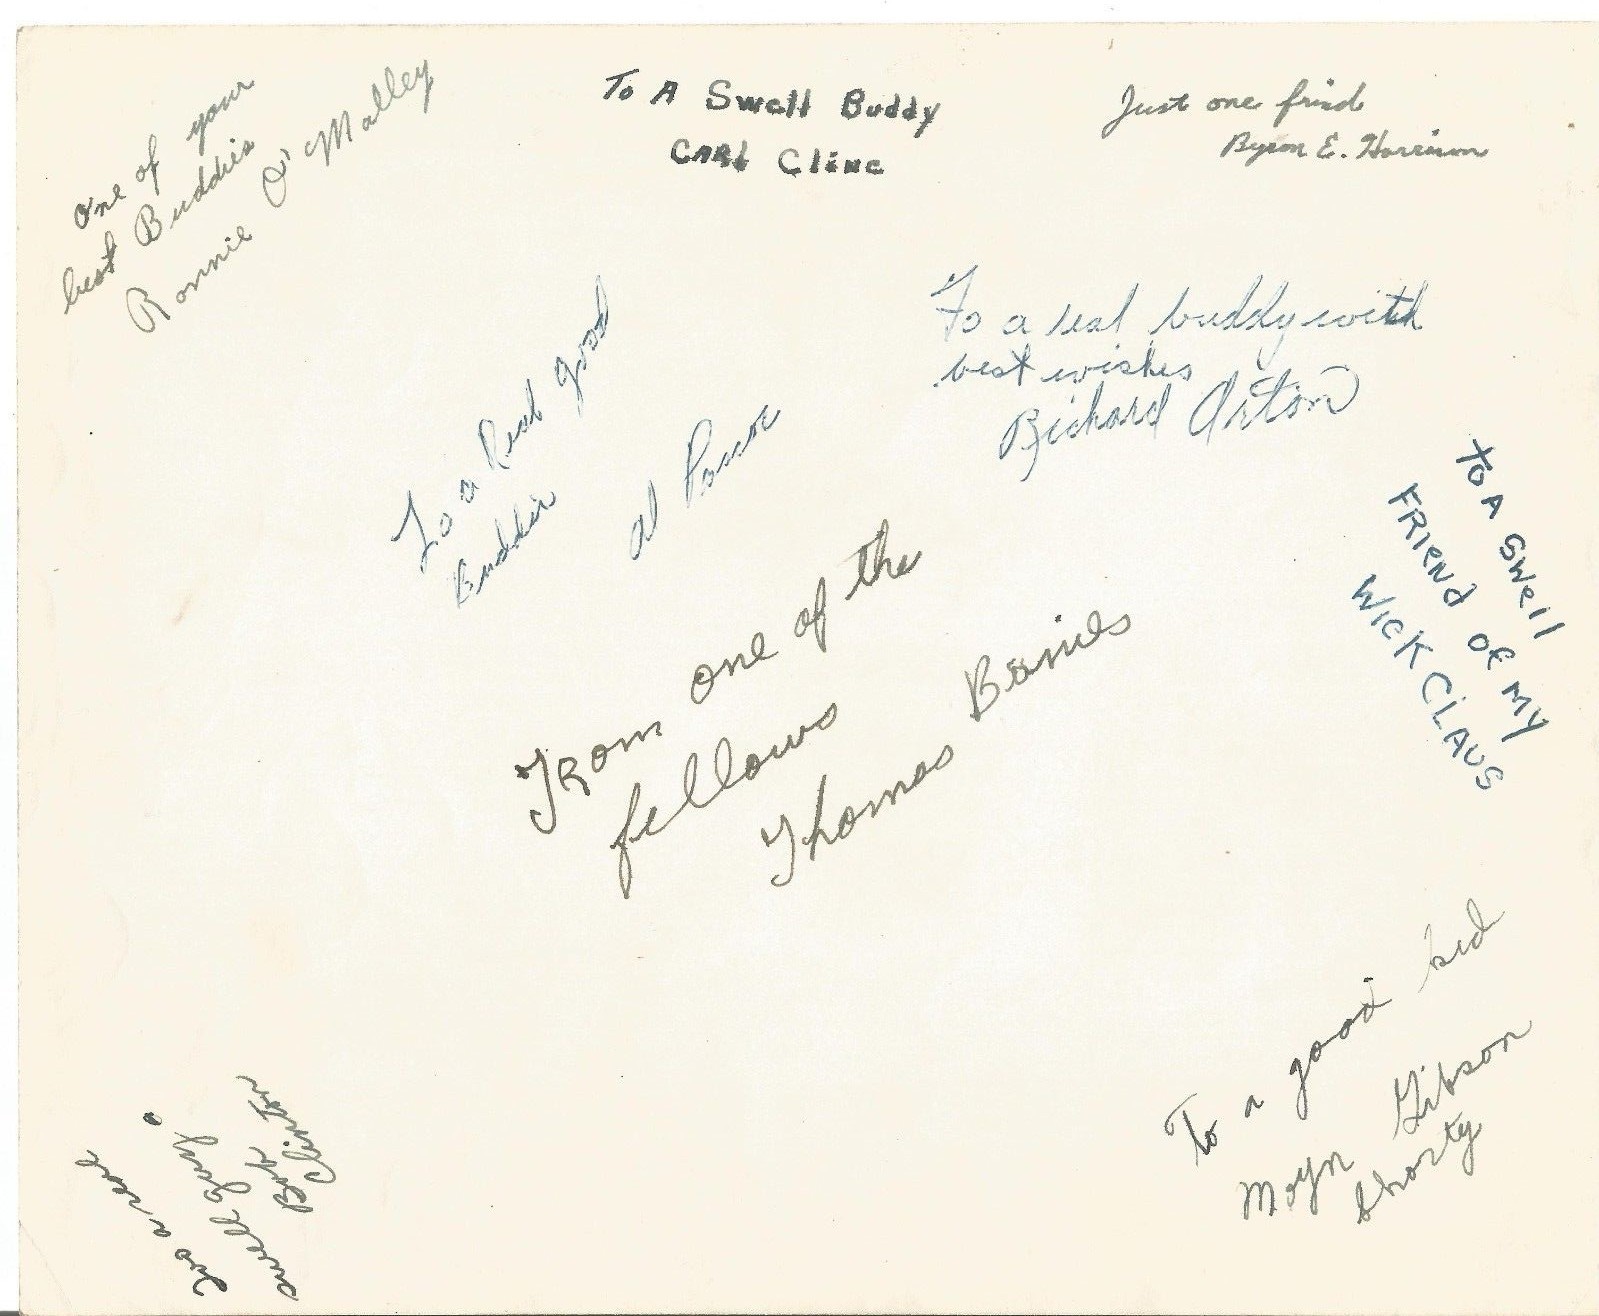 One of your
best Buddies
Ronnie O'Malley
To A Swell Buddy
CARL Cline
Just one frind
Byron E. Harrison
To a Real Good
Buddie
Al
To a real buddy with
best wishes
Richard Orton
To A Swell
FRIend OF MY
WICK CLAUS
From one of the
fellows
Thomas Baines
To a good kid
Moyn Gibson
Shorty
Two a real
swell guy.
Bob
Clinton